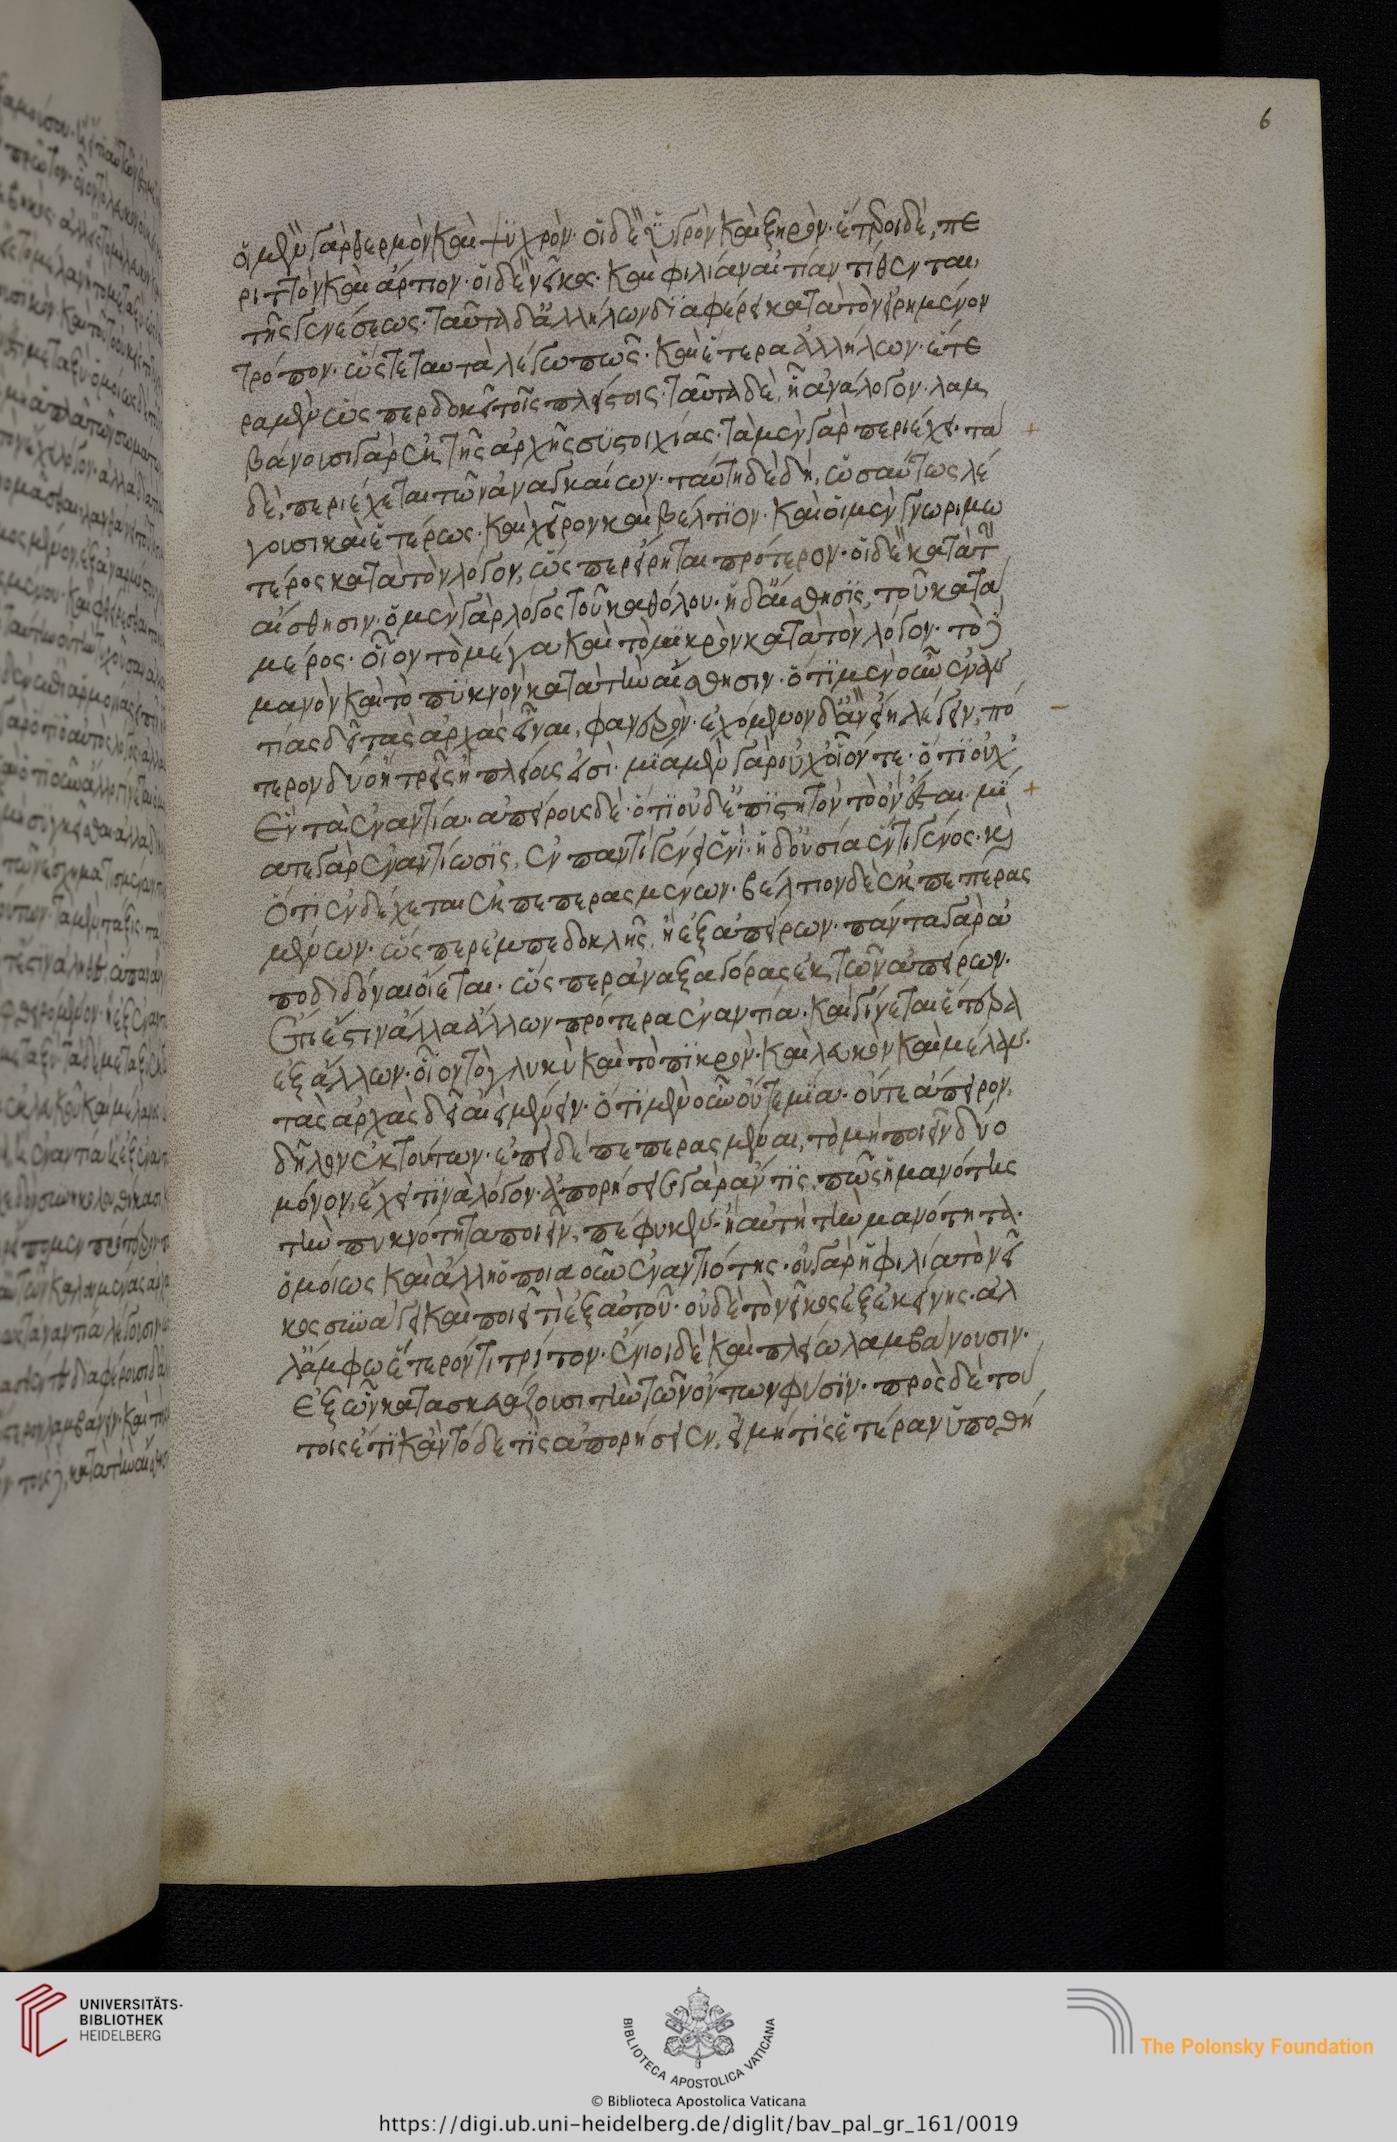 6
οἱ μὲν γὰρ θερμὸν καὶ ψυχρόν· οἱ δὲ ὑγρὸν καὶ ξηρόν· ἕτεροι δὲ, πε
ριττὸν καὶ ἄρτιον· οἱ δὲ νεῖκος καὶ φιλίαν αἰτίαν τίθενται
τῆς γενέσεως· ταῦτα δ' ἀλλήλων διαφέρει κατὰ τὸν εἰρημένον
τρόπον· ὥστε ταυτὰ λέγω πως· καὶ ἕτερα ἀλλήλων· ἕτε
ρα μὲν ὥσπερ δοκεῖ τοῖς πλείστοις· ταῦτα δὲ, ᾗ ἀνάλογον· λαμ
βάνουσι γὰρ ἐκ τῆς ἀρχῆς συστοιχίας· τὰ μὲν γὰρ περιέχει· τὰ
δὲ, περιέχεται τῶν ἀναγκαίων· ταύτῃ δὲ δὴ, ὡσαύτως λέ
γουσι καὶ ἑτέρως· καὶ χεῖρον καὶ βέλτιον· καὶ οἱ μὲν γνωριμω
τέρος κατὰ τὸν λόγον, ὥσπερ εἴρηται πρότερον· οἱ δὲ κατὰ τὴν
αἴσθησιν· ὁ μὲν γὰρ λόγος τοῦ καθόλου· ἡ δ' αἴσθησις, τοῦ κατὰ
μέρος· οἷον τὸ μέγα καὶ τὸ μικρὸν κατὰ τὸν λόγον· τὸ δὲ
μανὸν καὶ τὸ πυκνὸν κατὰ τὴν αἴσθησιν· ὅτι μὲν οὖν ἐναν
τίας δεῖ τὰς ἀρχὰς εἶναι, φανερόν· ἐχόμενον δ' ἂν εἴη λέγειν, πό
τερον δύο ἢ τρεῖς ἢ πλείους εἰσί· μίαν μὲν γὰρ οὐχ οἷόν τε· ὅτι οὐχ
ἓν τὰ ἐναντία· ἀπείρους δὲ· ὅτι οὐδ' ἐπιστητὸν τὸ ὂν ἔσται· μί
α τε γὰρ ἐναντίωσις, ἐν παντὶ γένει ἑνί· ἡ δ' οὐσία ἕν τι γένος· καὶ
ὅτι ἐνδέχεται ἐκ πεπερασμένων· βέλτιον δὲ ἐκ πεπερας
μένων· ὥσπερ ἐμπεδοκλῆς, ἢ ἐξ ἀπείρων· πάντα γὰρ ἀ
ποδιδόναι οἴεται· ὥσπερ ἀναξαγόρας ἐκ τῶν ἀπείρων·
ἔτι ἔστιν ἄλλα ἄλλων πρότερα ἐναντία· καὶ γίνεται ἕτερα
ἐξ ἄλλων· οἷον τὸ γλυκὺ καὶ τὸ πικρόν· καὶ λευκὸν καὶ μέλαν·
τὰς ἀρχὰς δεῖ ἀεὶ μένειν· ὅτι μὲν οὖν οὔτε μία· οὔτε ἄπειρον,
δῆλον ἐκ τούτων· ἐπεὶ δὲ πεπερασμέναι, τὸ μὴ ποιεῖν δύο
μόνον, ἔχει τινὰ λόγον· ἀπορήσειε γὰρ ἄν τις, πῶς ἢ μανότης
τὴν πυκνότητα ποιεῖν, πέφυκεν· ἢ αὐτὴ τὴν μανότητα·
ὁμοίως καὶ ἄλλη ὁποιαοῦν ἐναντιότης· οὐ γὰρ ἡ φιλία τὸ νεῖ
κος συνάγει καὶ ποιεῖ τι ἐξ αὐτοῦ· οὐδὲ τὸ νεῖκος ἐξ ἐκείνης· ἀλ
λ' ἄμφω ἕτερόν τι τρίτον· ἔνιοι δὲ καὶ πλείω λαμβάνουσιν·
ἐξ ὧν κατασκευάζουσι τὴν τῶν ὄντων φύσιν· πρὸς δὲ τού
τοις ἔτι κἂν τόδε τις ἀπορήσειεν, εἰ μή τις ἑτέραν ὑποθή
UNIVERSITÄTS-
BIBLIOTHEK
HEIDELBERG
BIBLIOTECA APOSTOLICA VATICANA
The Polonsky Foundation
© Biblioteca Apostolica Vaticana
https://digi.ub.uni-heidelberg.de/diglit/bav_pal_gr_161/0019